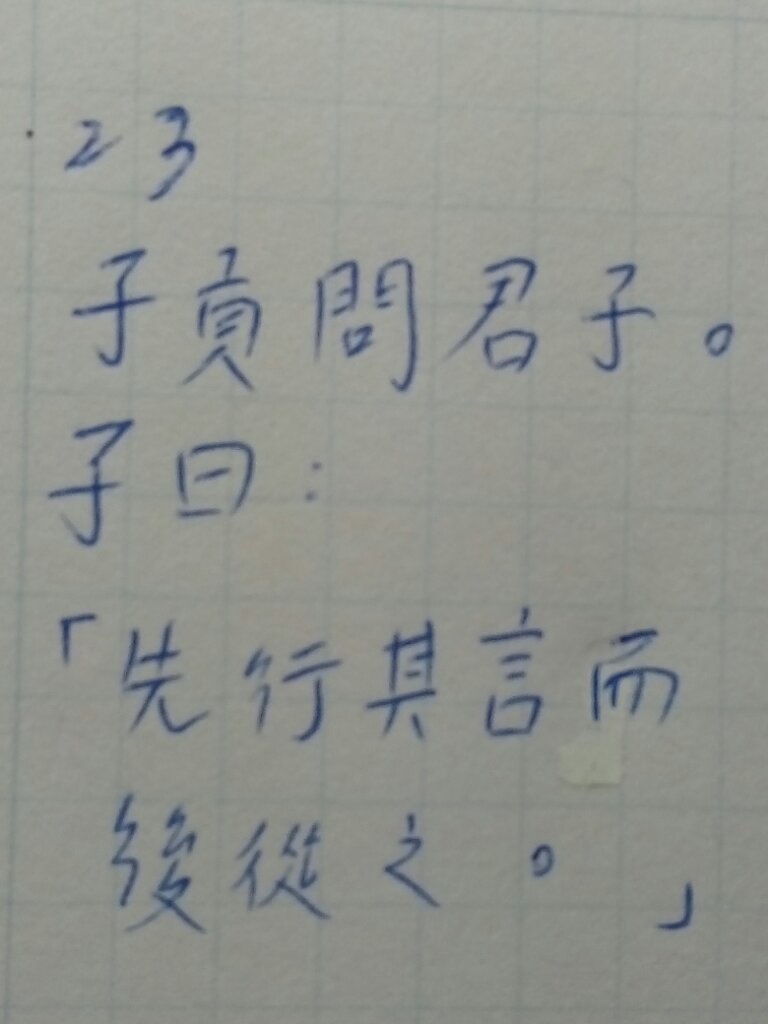 23
子貢問君子。
子曰:
「先行其言而
後從之。」